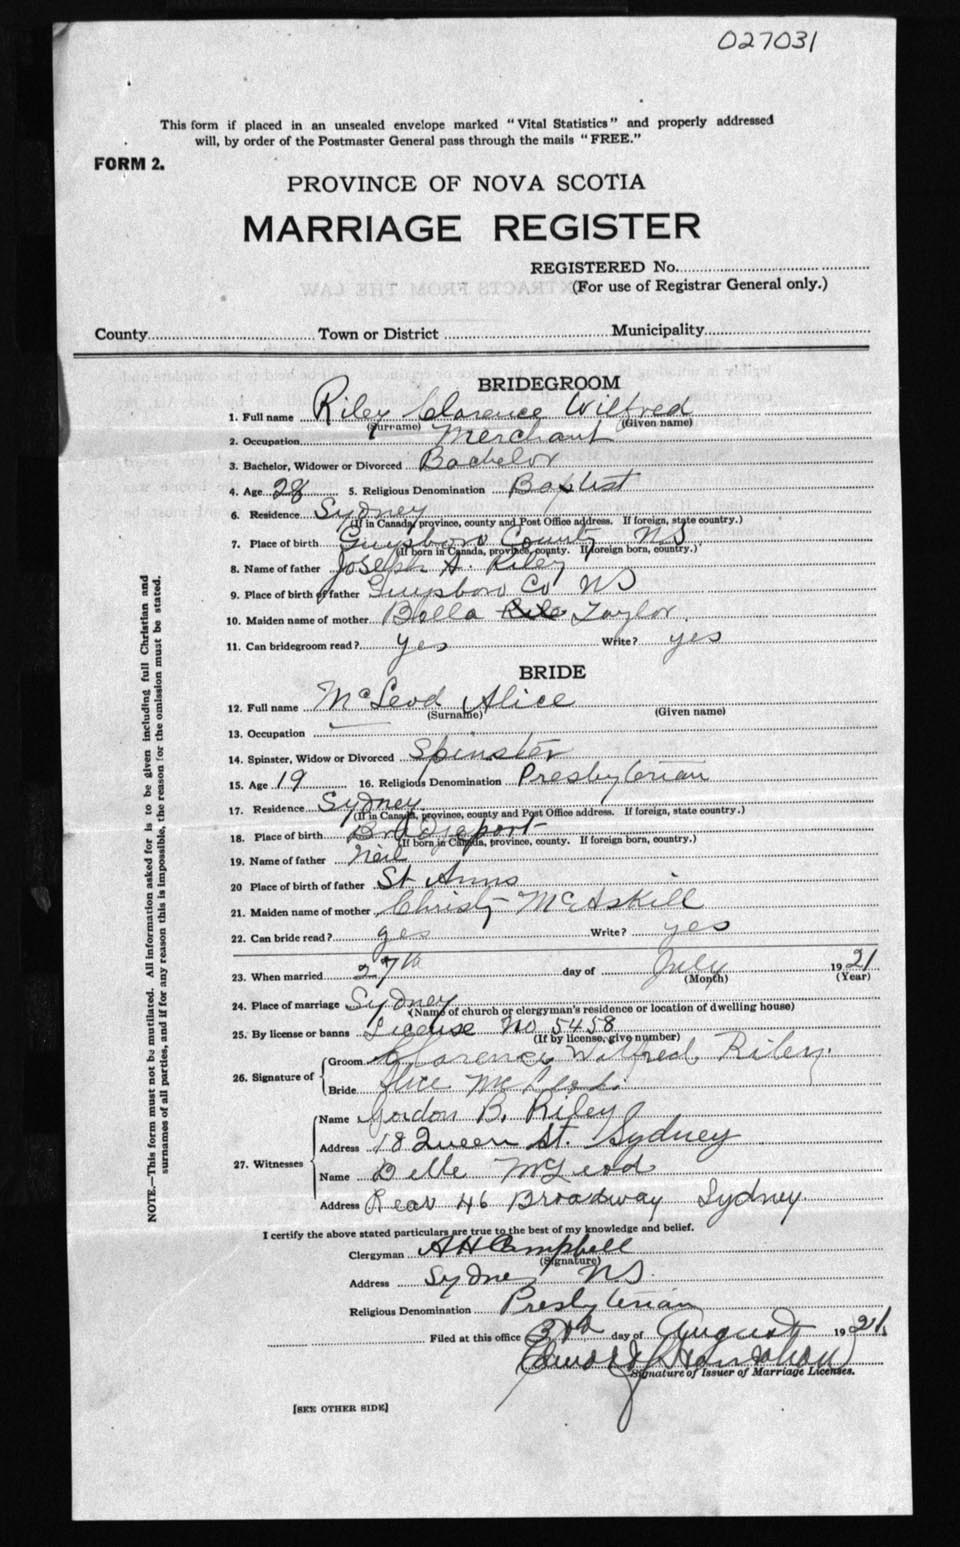 027031
This form if placed in an unsealed envelope marked "Vital Statistics" and properly addressed
will, by order of the Postmaster General pass through the mails "FREE."
FORM 2.
PROVINCE OF NOVA SCOTIA
MARRIAGE REGISTER
REGISTERED No.
(For use of Registrar General only.)
County Town or District Municipality
BRIDEGROOM
1. Full name Riley Clarence Wilfred
(Surname) (Given name)
2. Occupation Merchant
3. Bachelor, Widower or Divorced Bachelor
4. Age 28 5. Religious Denomination Baptist
6. Residence Sydney
(If in Canada, province, county and Post Office address. If foreign, state country.)
7. Place of birth Guysboro County NS
(If born in Canada, province, county. If foreign born, country.)
8. Name of father Joseph A. Riley
9. Place of birth of father Guysboro Co NS
10. Maiden name of mother Bella Taylor
11. Can bridegroom read? yes Write? yes
BRIDE
12. Full name McLeod Alice
(Surname) (Given name)
13. Occupation —
14. Spinster, Widow or Divorced Spinster
15. Age 19 16. Religious Denomination Presbyterian
17. Residence Sydney
(If in Canada, province, county and Post Office address. If foreign, state country.)
18. Place of birth Bridgeport
(If born in Canada, province, county. If foreign born, country.)
19. Name of father Neil
20 Place of birth of father St Anns
21. Maiden name of mother Christy McAskill
22. Can bride read? yes Write? yes
23. When married 27th day of July 1921
(Month) (Year)
24. Place of marriage Sydney
(Name of church or clergyman's residence or location of dwelling house)
25. By license or banns License No 5458
(If by license, give number)
26. Signature of Groom Clarence Wilfred Riley.
Bride Alice McLeod.
27. Witnesses Name Gordon B. Riley
Address 18 Queen St. Sydney
Name Belle McLeod
Address Rear 46 Broadway Sydney
I certify the above stated particulars are true to the best of my knowledge and belief.
Clergyman A H Campbell
(Signature)
Address Sydney NS.
Religious Denomination Presbyterian
Filed at this office day of August 1921
Signature of Issuer of Marriage Licenses.
[SEE OTHER SIDE]
NOTE.—This form must not be mutilated. All information asked for is to be given including full Christian and
surnames of all parties, and if for any reason this is impossible, the reason for the omission must be stated.